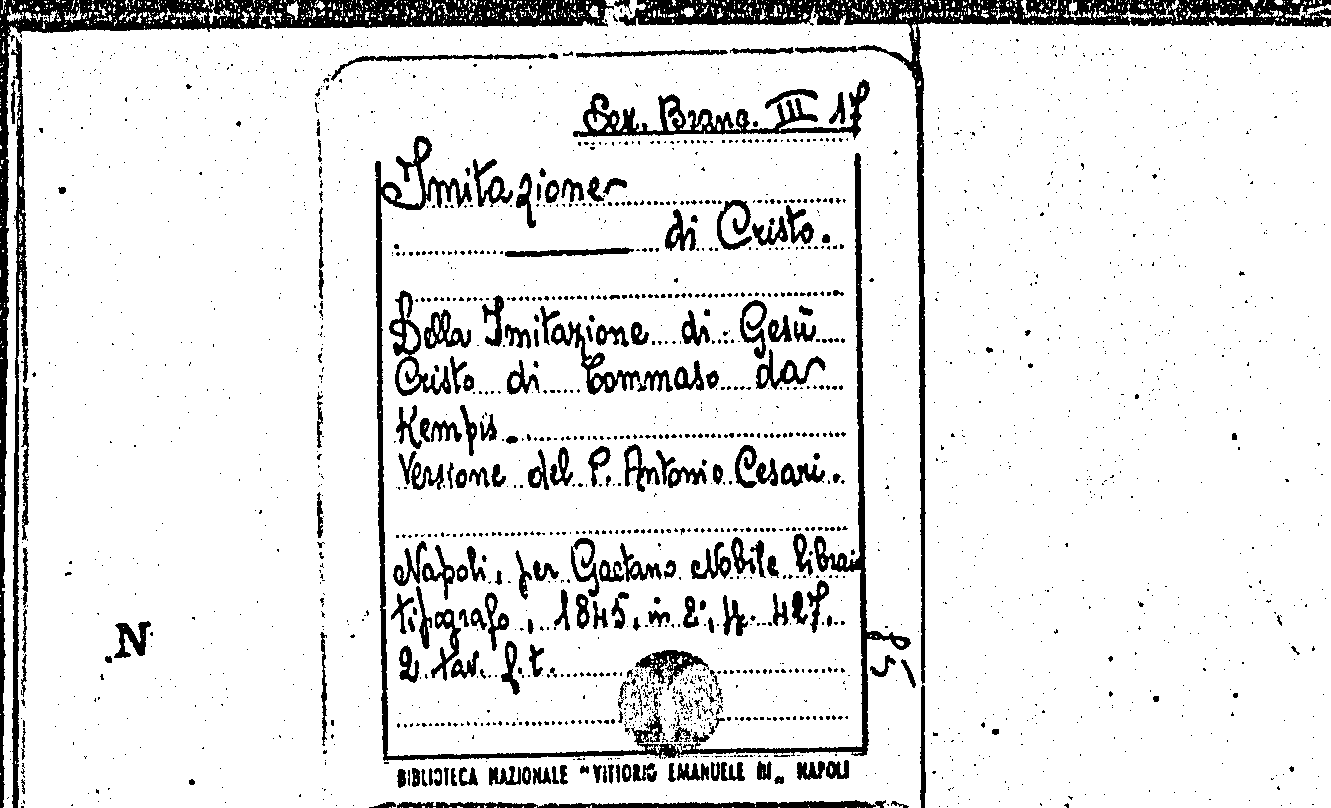 Sez. Branc. III 17
Imitazione
di Cristo.
Della Imitazione di Gesù
Cristo di Tommaso da
Kempis.
Versione del P. Antonio Cesari.
Napoli, per Gaetano Nobile libraio
tipografo, 1845, in 8°, pp. 427.
2 tav. f. t.
N
BIBLIOTECA NAZIONALE "VITTORIO EMANUELE III" NAPOLI